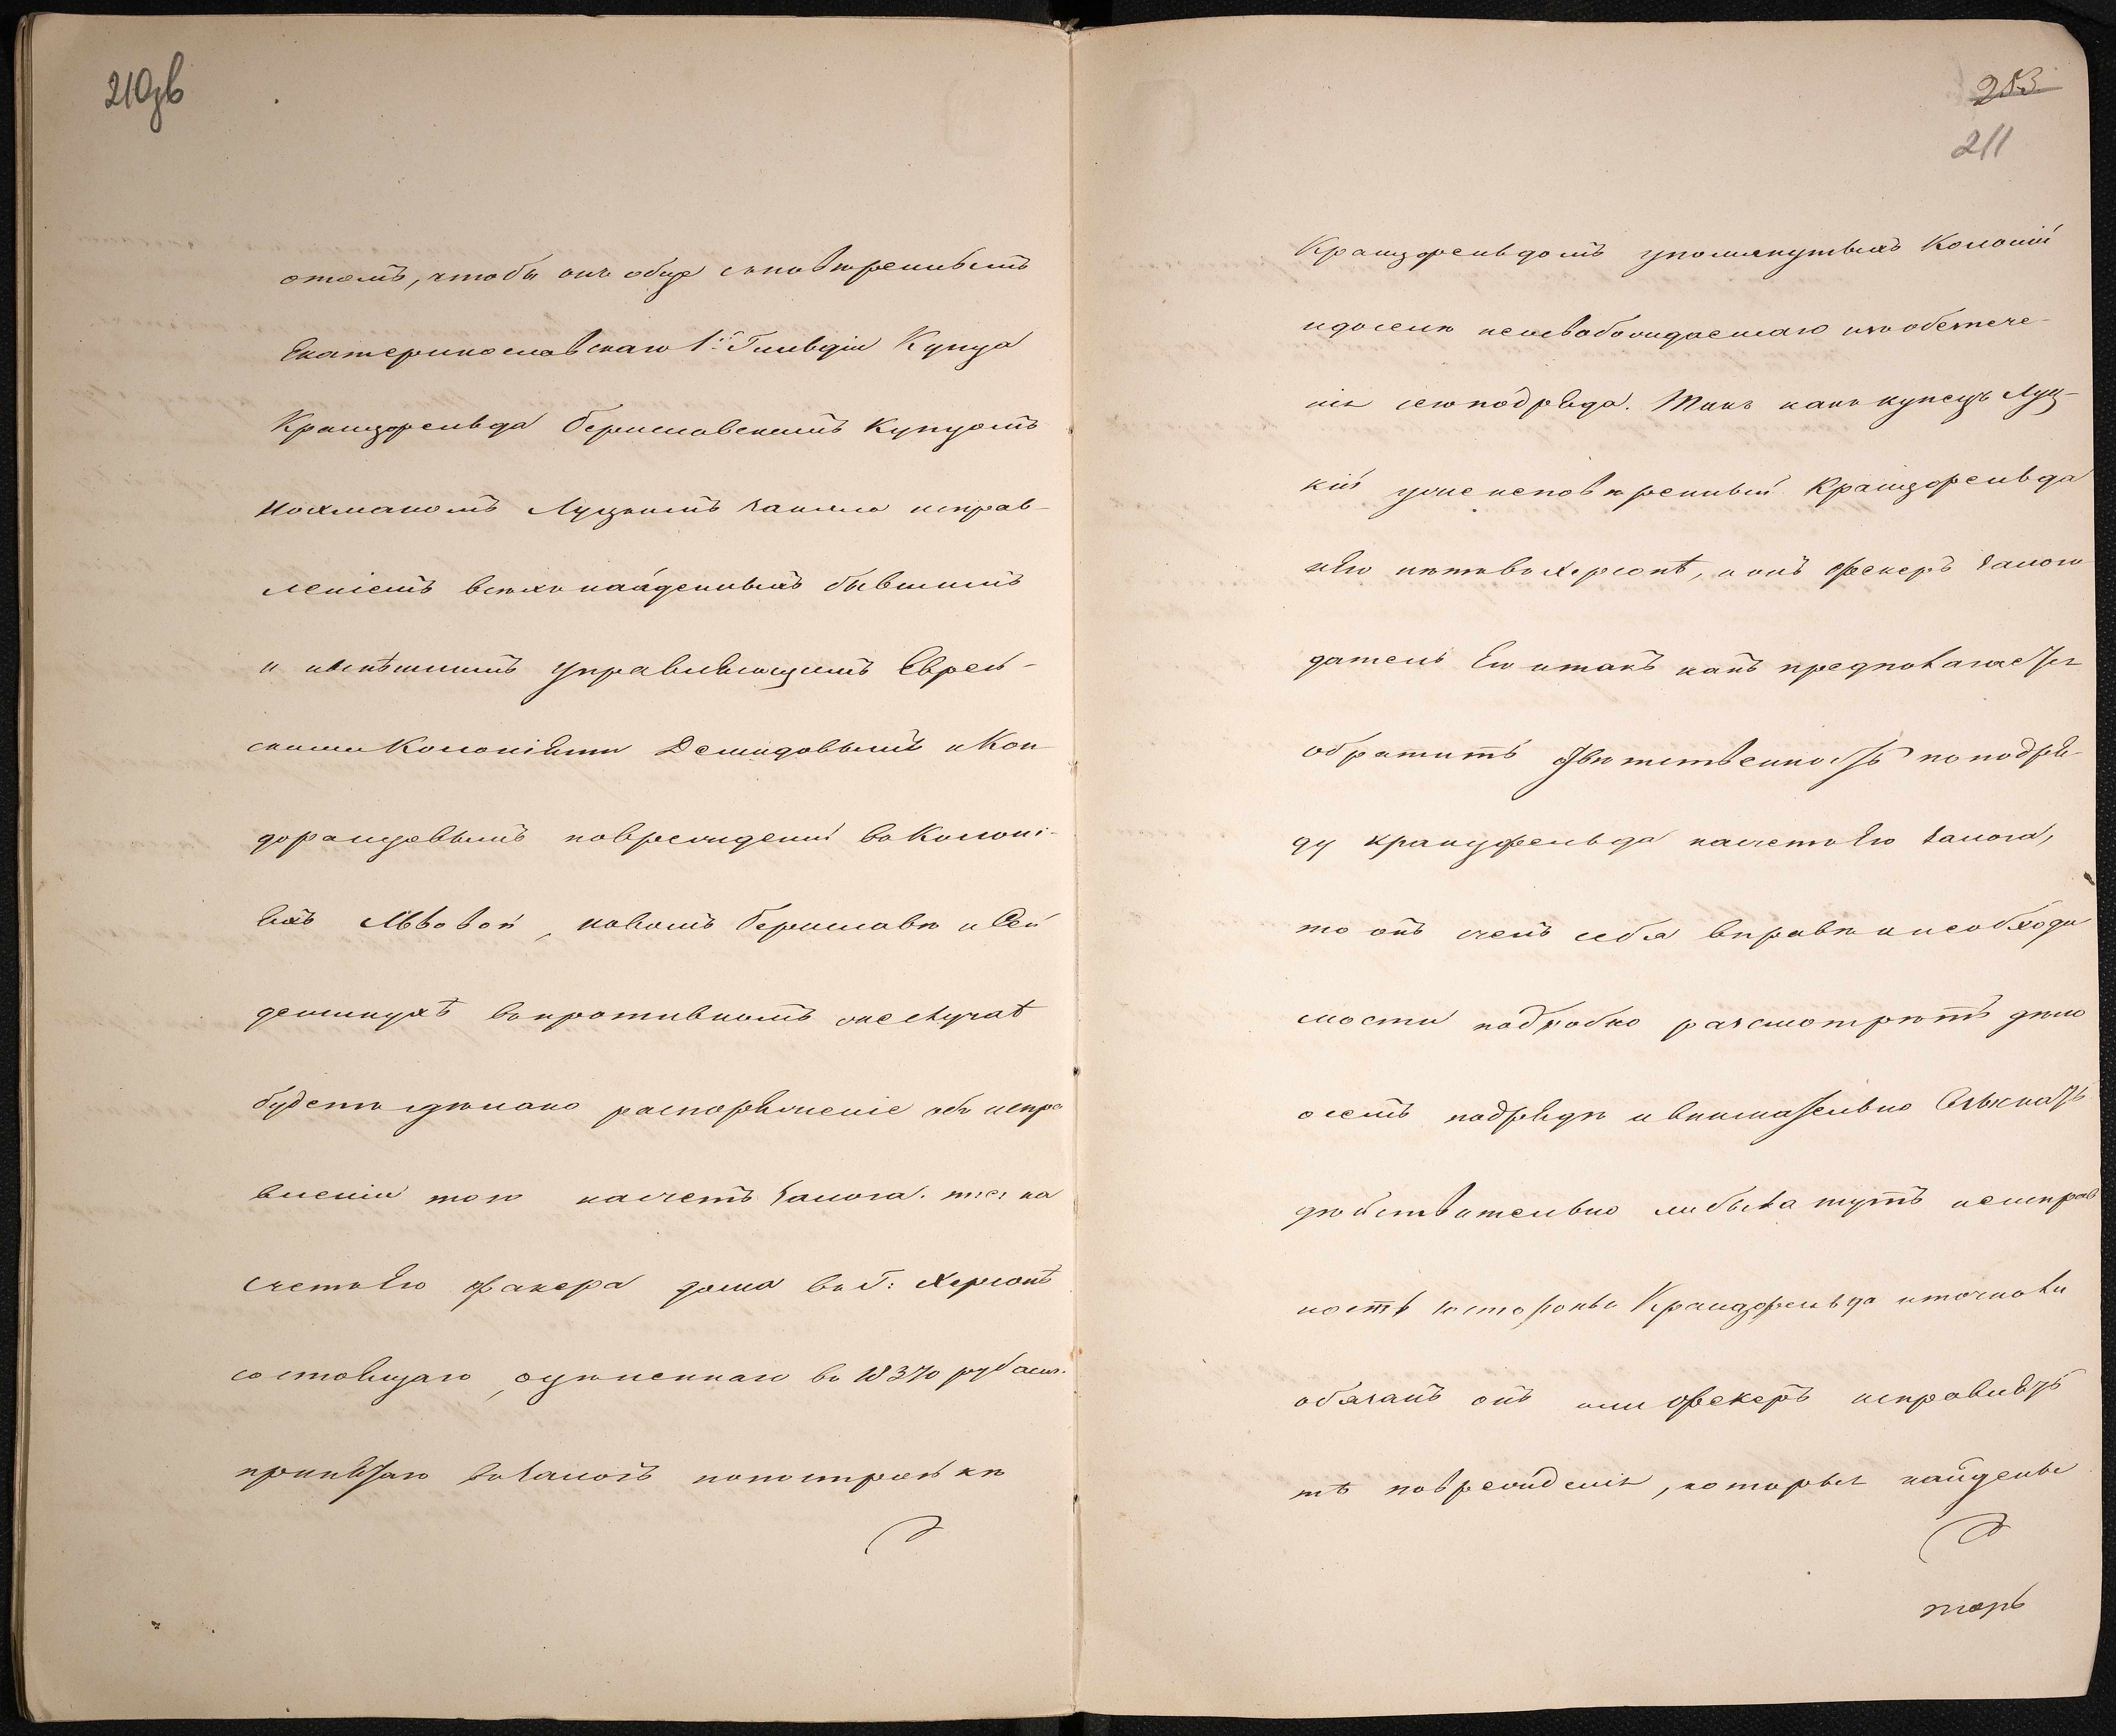 210зв
отомъ, чтобы онъ обще съ повѣреннымъ
Екатеринославскаго 1й Гильдіи Купца
Кранцфельда Бериславскимъ Купцомъ
Нохманомъ Луцкимъ занялся исправ-
леніемъ всѣхъ найденныхъ бывшимъ
и нынѣшнимъ Управляющимъ Еврей-
скими Колоніями Демидовымъ и Кон
доранцовымъ поврежденій въ Колоні-
яхъ Львовой, Новомъ Бериславѣ и Сей
деминухѣ въ противномъ же случаѣ
будетъ сдѣлано распоряженіе объ испра
вленіи того на счетъ залога т: е: на
счетъ его Фекера дома въ Г: Херсонѣ
состоящаго, оцѣненнаго въ 18370 руб асиг.
принятаго въ залогъ по постройкѣ
253
211
Кранцфельдомъ упомянутыхъ Колоній
и доселѣ не освобождаемаго изъ обезпече-
нія сего подряда. Такъ какъ купецъ Луц-
кій уже не повѣренный Кранцфельда
и его нѣтъ въ Херсонѣ, и онъ Фекеръ залого
датель его и такъ какъ предполагается
обратить отвѣтственность по подря-
ду Кранцфельда на счетъ его залога,
то онъ счелъ себя вправѣ и необходи
мости подробно разсмотрѣть дѣло
о семъ подрядѣ и внимательно Отыскать
дѣйствительно ли была тутъ неисправ
ность со стороны Кранцфельда и точно ли
обязанъ онъ или Фекеръ исправлять
тѣ поврежденія, которыя найдены
торъ